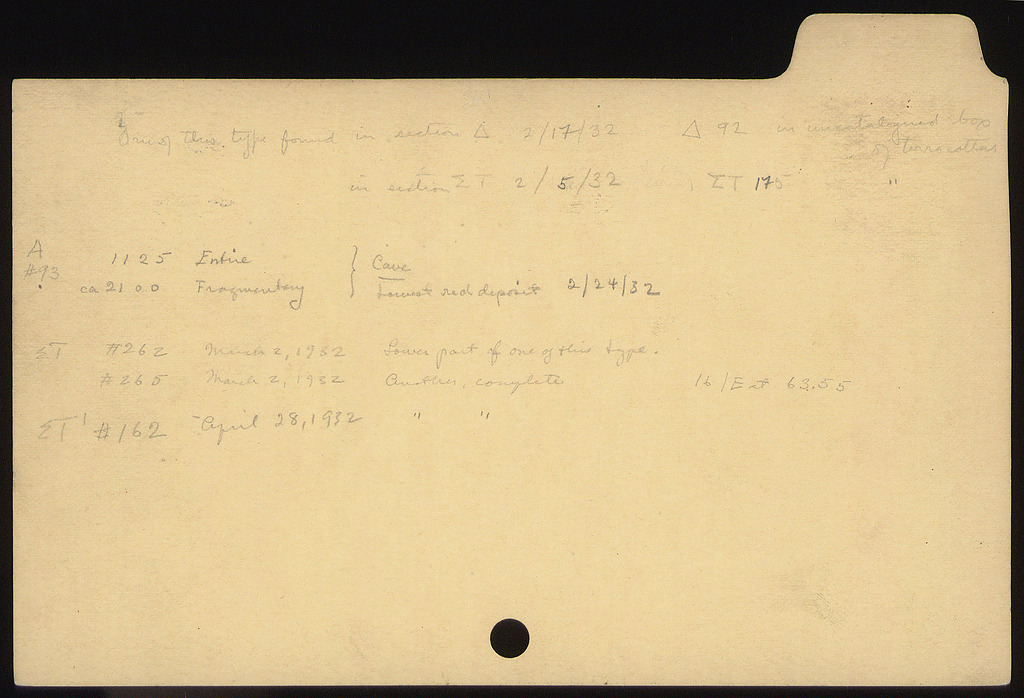 One of this type found in section Δ 2/17/32 Δ 92 in uncatalogued box
of terracottas
in section ΣΤ 2/5/32 ΣΤ 175 "
A
#93 1125 Entire } Cave
ca 2100 Fragmentary } Lowest red deposit 2/24/32
ΣΤ #262 March 2, 1932 Lower part of one of this type.
#265 March 2, 1932 Another, complete 16/E at 63.55
ΣΤ' #162 April 28, 1932 " "